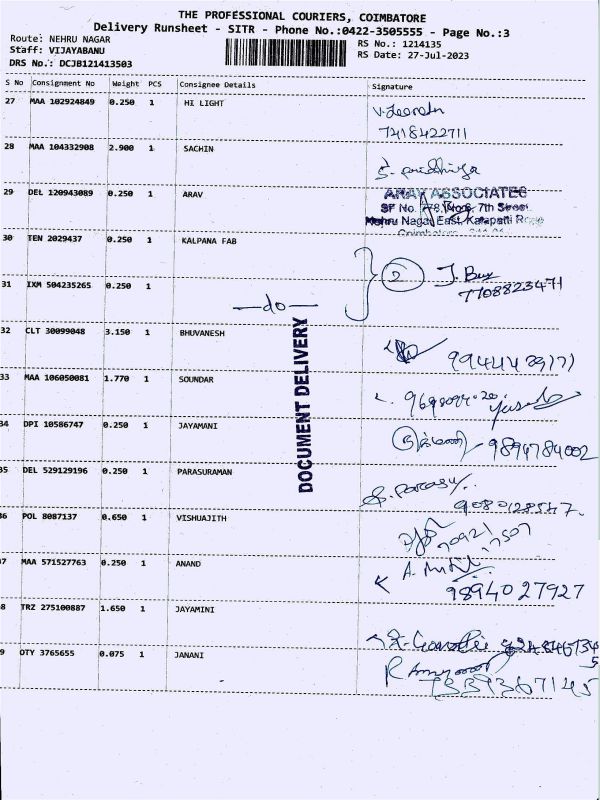 THE PROFESSIONAL COURIERS, COIMBATORE
Delivery Runsheet - SITR - Phone No.:0422-3505555 - Page No.:3
Route: NEHRU NAGAR RS No.: 1214135
Staff: VIJAYABANU RS Date: 27-Jul-2023
DRS No.: DCJB121413503
S No Consignment No Weight PCS Consignee Details Signature
27 MAA 102924849 0.250 1 HI LIGHT
7418422711
28 MAA 104332908 2.900 1 SACHIN
29 DEL 120943089 0.250 1 ARAV
ARAV ASSOCIATES
7th Street
Nehru Nagar East, Kalapatti
30 TEN 2029437 0.250 1 KALPANA FAB
2 7708823471
31 IXM 504235265 0.250 1
—do—
32 CLT 30099048 3.150 1 BHUVANESH
33 MAA 106050081 1.770 1 SOUNDAR
34 DPI 10586747 0.250 1 JAYAMANI
9894784002
DOCUMENT DELIVERY
35 DEL 529129196 0.250 1 PARASURAMAN
36 POL 8087137 0.650 1 VISHUAJITH
37 MAA 571527763 0.250 1 ANAND
9894027927
38 TRZ 275100887 1.650 1 JAYAMINI
39 OTY 3765655 0.075 1 JANANI
7339367145